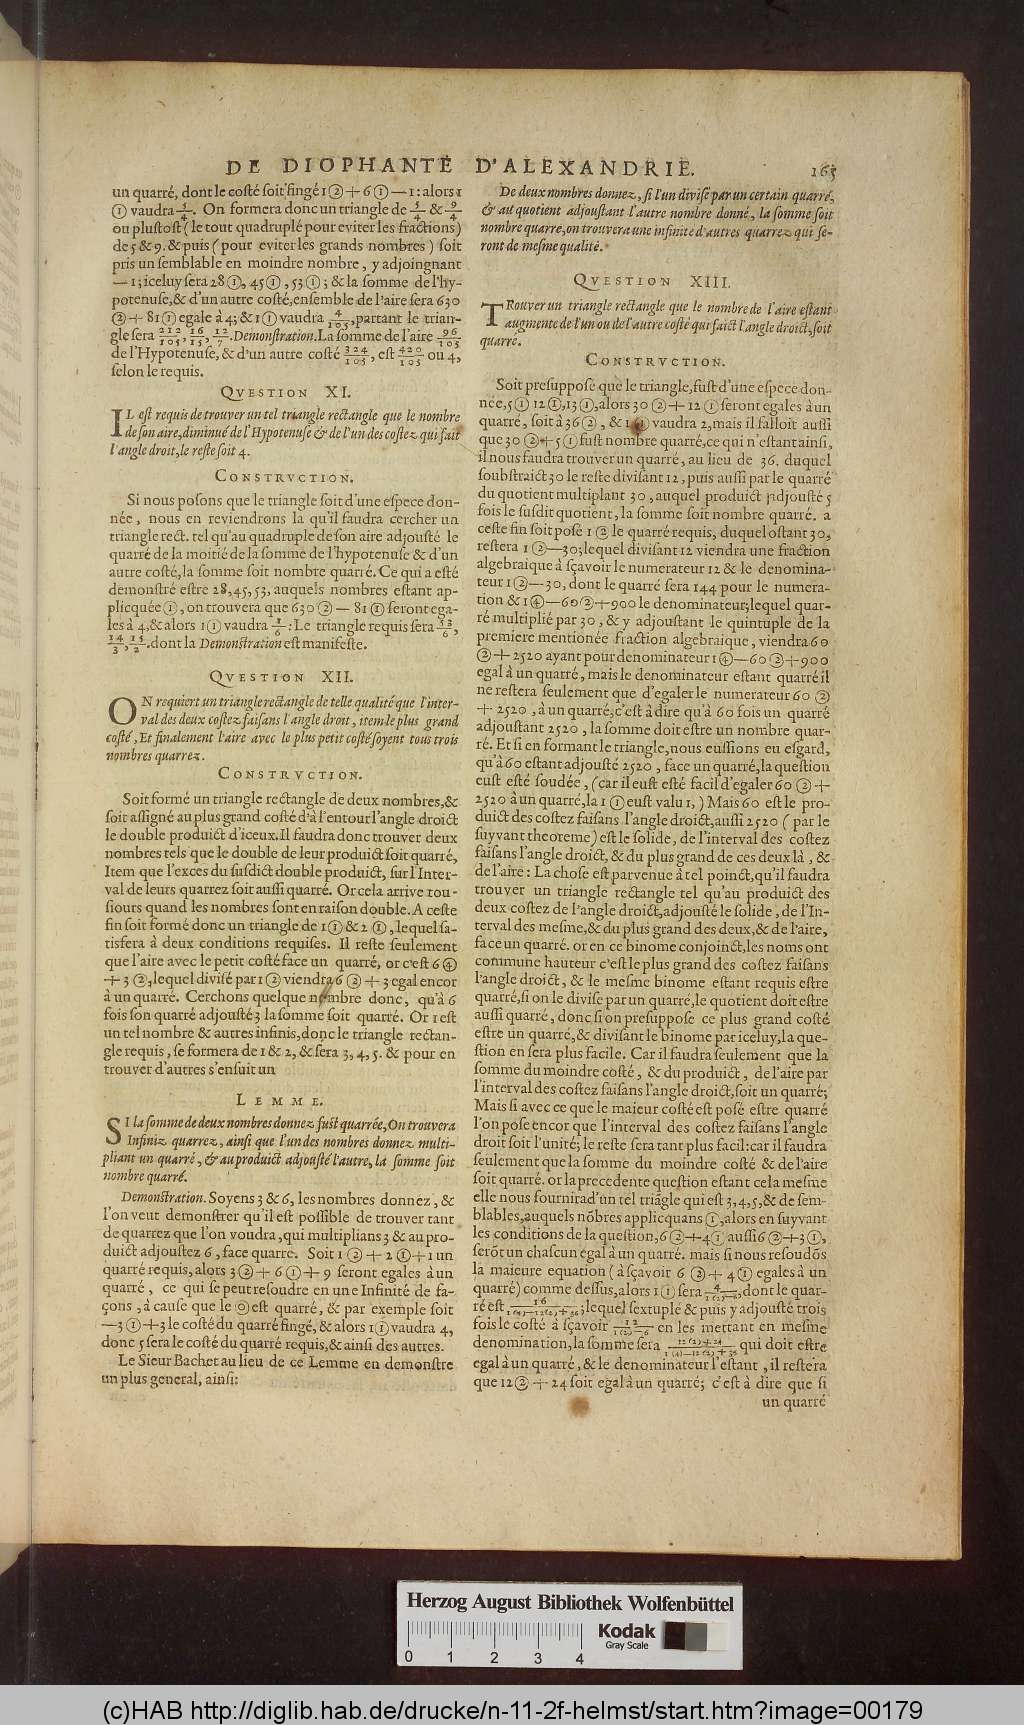 DE DIOPHANTE D'ALEXANDRIE. 163
un quarré, dont le costé soit fingé 1 ② + 6 ① — 1 : alors 1
① vaudra 5/4. On formera donc un triangle de 5/4 & 9/4
ou plustost ( le tout quadruplé pour eviter les fractions)
de 5 & 9. & puis ( pour eviter les grands nombres ) soit
pris un semblable en moindre nombre, y adjoingnant
— 1; iceluy sera 28 ①, 45 ①, 53 ①; & la somme de l'hy-
potenuse, & d'un autre costé, ensemble de l'aire sera 630
② + 81 ① egale à 4; & 1 ① vaudra 4/105, partant le trian-
gle sera 212/105, 16/15, 12/7. Demonstration. La somme de l'aire 96/105
de l'Hypotenuse, & d'un autre costé 324/105, est 420/105 ou 4,
selon le requis.
QVESTION XI.
IL est requis de trouver un tel triangle rectangle que le nombre
de son aire, diminué de l'Hypotenuse & de l'un des costez qui fait
l'angle droit, le reste soit 4.
CONSTRVCTION.
Si nous posons que le triangle soit d'une espece don-
née, nous en reviendrons la qu'il faudra cercher un
triangle rect. tel qu'au quadruple de son aire adjousté le
quarré de la moitié de la somme de l'hypotenuse & d'un
autre costé, la somme soit nombre quarré. Ce qui a esté
demonstré estre 28, 45, 53, auquels nombres estant ap-
plicquée ①, on trouvera que 630 ② — 81 ① seront ega-
les à 4, & alors 1 ① vaudra 1/6: Le triangle requis sera 53/6,
14/3, 15/2. dont la Demonstration est manifeste.
QVESTION XII.
ON requiert un triangle rectangle de telle qualité que l'inter-
val des deux costez faisans l'angle droit, item le plus grand
costé, Et finalement l'aire avec le plus petit costé soyent tous trois
nombres quarrez.
CONSTRVCTION.
Soit formé un triangle rectangle de deux nombres, &
soit assigné au plus grand costé d'à l'entour l'angle droict
le double produict d'iceux. Il faudra donc trouver deux
nombres tels que le double de leur produict soit quarré,
Item que l'exces du susdict double produict, sur l'Inter-
val de leurs quarrez soit aussi quarré. Or cela arrive tou-
siours quand les nombres sont en raison double. A ceste
fin soit formé donc un triangle de 1 ① & 2 ①, lequel sa-
tisfera à deux conditions requises. Il reste seulement
que l'aire avec le petit costé face un quarré, or c'est 6 ④
+ 3 ②, lequel divisé par 1 ② viendra 6 ② + 3 egal encor
à un quarré. Cerchons quelque nombre donc, qu'à 6
fois son quarré adjousté 3 la somme soit quarré. Or 1 est
un tel nombre & autres infinis, donc le triangle rectan-
gle requis, se formera de 1 & 2, & sera 3, 4, 5. & pour en
trouver d'autres s'ensuit un
LEMME.
SI la somme de deux nombres donnez fust quarrée, On trouvera
Infiniz quarrez, ainsi que l'un des nombres donnez multi-
pliant un quarré, & au produict adjousté l'autre, la somme soit
nombre quarré.
Demonstration. Soyens 3 & 6, les nombres donnez, &
l'on veut demonstrer qu'il est possible de trouver tant
de quarrez que l'on voudra, qui multiplians 3 & au pro-
duict adjoustez 6, face quarré. Soit 1 ② + 2 ① + 1 un
quarré requis, alors 3 ② + 6 ① + 9 seront egales à un
quarré, ce qui se peut resoudre en une Infinité de fa-
çons, à cause que le ⓪ est quarré, & par exemple soit
— 3 ① + 3 le costé du quarré fingé, & alors 1 ① vaudra 4,
donc 5 sera le costé du quarré requis, & ainsi des autres.
Le Sieur Bachet au lieu de ce Lemme en demonstre
un plus general, ainsi:
De deux nombres donnez, si l'un divisé par un certain quarré,
& au quotient adjoustant l'autre nombre donné, la somme soit
nombre quarré, on trouvera une infinite d'autres quarrez qui se-
ront de mesme qualité.
QVESTION XIII.
TRouver un triangle rectangle que le nombre de l'aire estant
augmente de l'un ou de l'autre costé qui faict l'angle droict, soit
quarré.
CONSTRVCTION.
Soit presupposé que le triangle, fust d'une espece don-
née, 5 ① 12 ①, 13 ①, alors 30 ② + 12 ① seront egales à un
quarré, soit à 36 ②, & 1 ① vaudra 2, mais il falloit aussi
que 30 ② + 5 ① fust nombre quarré, ce qui n'estant ainsi,
il nous faudra trouver un quarré, au lieu de 36. duquel
soubstraict 30 le reste divisant 12, puis aussi par le quarré
du quotient multiplant 30, auquel produict adjousté 5
fois le susdit quotient, la somme soit nombre quarré. a
ceste fin soit posé 1 ② le quarré requis, duquel ostant 30,
restera 1 ② — 30; lequel divisant 12 viendra une fraction
algebraique à sçavoir le numerateur 12 & le denomina-
teur 1 ② — 30, dont le quarré sera 144 pour le numera-
tion & 1 ④ — 60 ② + 900 le denominateur; lequel quar-
ré multiplié par 30, & y adjoustant le quintuple de la
premiere mentionée fraction algebraique, viendra 60
② + 2520 ayant pour denominateur 1 ④ — 60 ② + 900
egal à un quarré, mais le denominateur estant quarré il
ne restera seulement que d'egaler le numerateur 60 ②
+ 2520, à un quarré, c'est à dire qu'à 60 fois un quarré
adjoustant 2520, la somme doit estre un nombre quar-
ré. Et si en formant le triangle, nous eussions eu esgard,
qu'à 60 estant adjousté 2520, face un quarré, la question
eust esté soudée, (car il eust esté facil d'egaler 60 ② +
2520 à un quarré, la 1 ① eust valu 1,) Mais 60 est le pro-
duict des costez faisans l'angle droict, aussi 2520 ( par le
suyvant theoreme) est le solide, de l'interval des costez
faisans l'angle droict, & du plus grand de ces deux là, &
de l'aire: La chose est parvenue à tel poinct, qu'il faudra
trouver un triangle rectangle tel qu'au produict des
deux costez de l'angle droict, adjousté le solide, de l'In-
terval des mesme, & du plus grand des deux, & de l'aire,
face un quarré. or en ce binome conjoinct, les noms ont
commune hauteur c'est le plus grand des costez faisans
l'angle droict, & le mesme binome estant requis estre
quarré, si on le divise par un quarré, le quotient doit estre
aussi quarré, donc si on presuppose ce plus grand costé
estre un quarré, & divisant le binome par iceluy, la que-
stion en sera plus facile. Car il faudra seulement que la
somme du moindre costé, & du produict, de l'aire par
l'interval des costez faisans l'angle droict, soit un quarré;
Mais si avec ce que le maieur costé est posé estre quarré
l'on pose encor que l'interval des costez faisans l'angle
droit soit l'unité; le reste sera tant plus facil: car il faudra
seulement que la somme du moindre costé & de l'aire
soit quarré. or la precedente question estant cela mesme
elle nous fournira d'un tel triãgle qui est 3, 4, 5, & de sem-
blables, auquels nõbres applicquans ①, alors en suyvant
les conditions de la question, 6 ② + 4 ① aussi 6 ② + 3 ①,
serõt un chascun egal à un quarré. mais si nous resoudõs
la maieure equation ( à sçavoir 6 ② + 4 ① egales à un
quarré) comme dessus, alors 1 ① sera 4/1(2)—6, dont le quar-
ré est 16/1(4)—12(2)+36; lequel sextuplé & puis y adjousté trois
fois le costé à sçavoir 12/1(2)—6 en les mettant en mesme
denomination, la somme sera 12(2)+24/1(4)—12(2)+36 qui doit estre
egal à un quarré, & le denominateur l'estant, il restera
que 12 ② + 24 soit egal à un quarré; c'est à dire que si
un quarré
Herzog August Bibliothek Wolfenbüttel
Kodak
Gray Scale
0 1 2 3 4
(c)HAB http://diglib.hab.de/drucke/n-11-2f-helmst/start.htm?image=00179